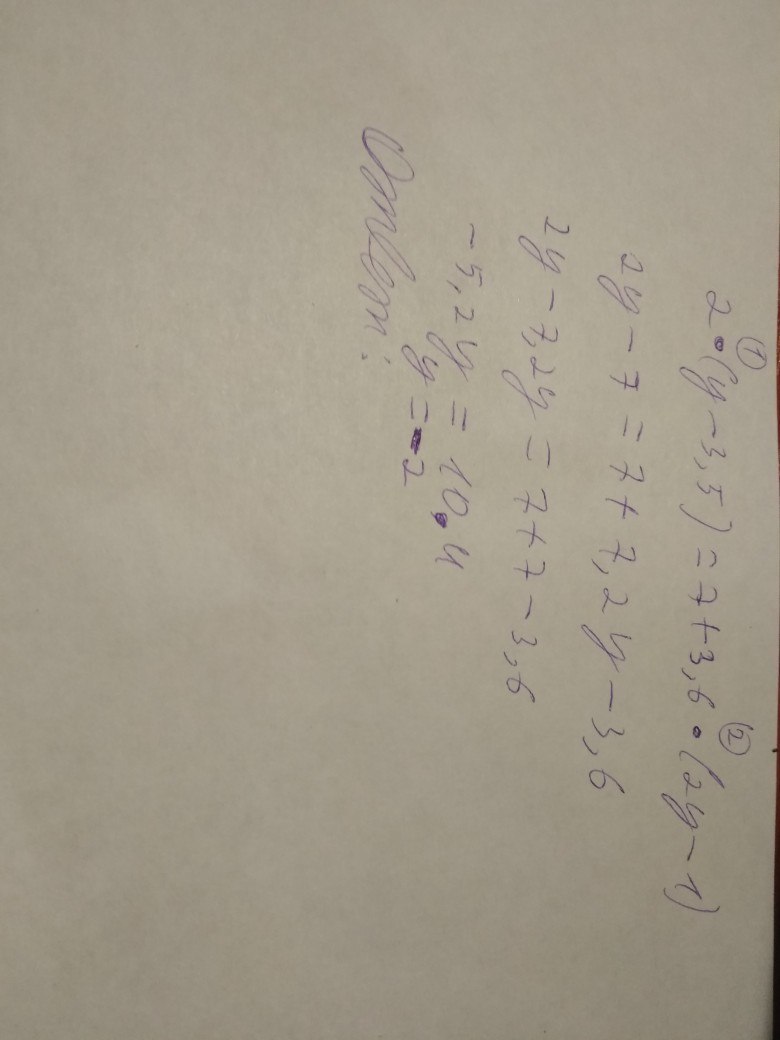 ① ②
2•(y-3,5)=7+3,6•(2y-1)
2y-7=7+7,2y-3,6
2y-7,2y=7+7-3,6
-5,2y=10,4
y=-2
Ответ: